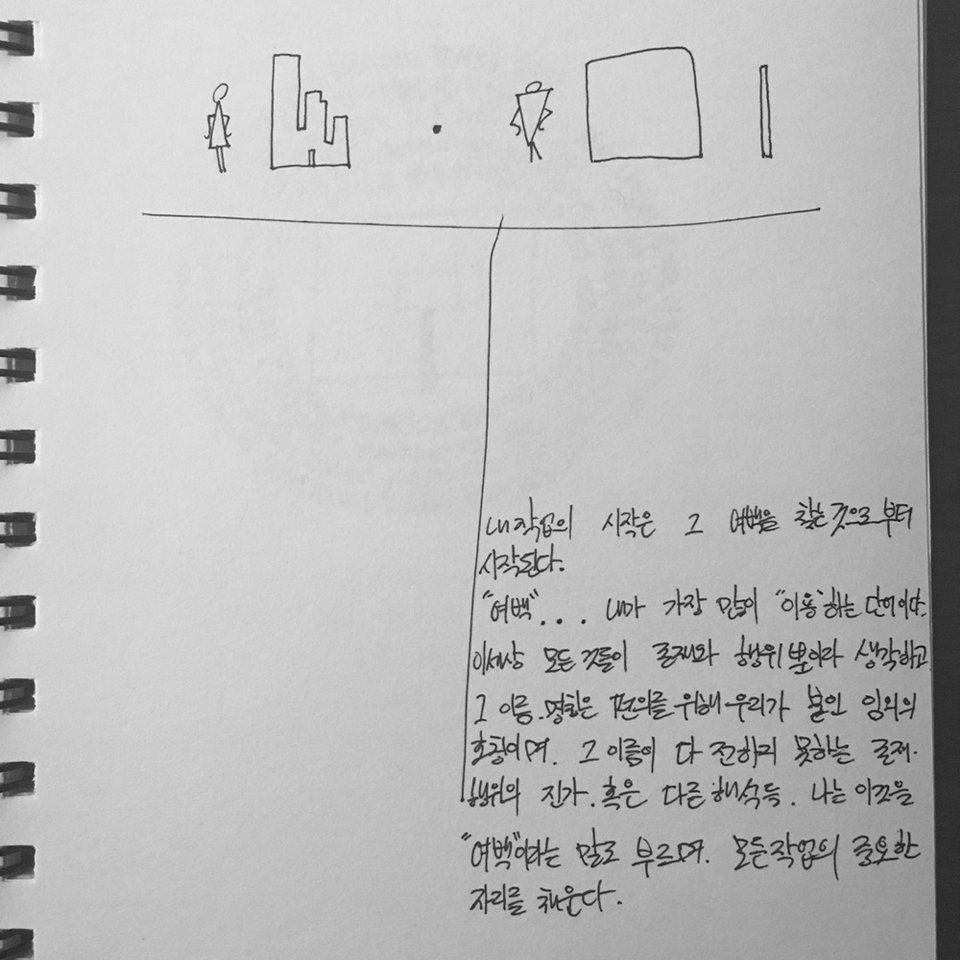 내 작업의 시작은 그 여백을 찾는 것으로부터
시작된다.
"여백"... 내가 가장 많이 "이용"하는 단어이다.
이세상 모든 것들이 존재와 행위뿐이라 생각하고
그 이름.명칭은 편의를 위해 우리가 붙인 임의의
호칭이며. 그 이름이 다 전하지 못하는 존재.
행위의 진가.혹은 다른 해석들. 나는 이것을
"여백"이라는 말로 부르며. 모든작업의 중요한
자리를 채운다.